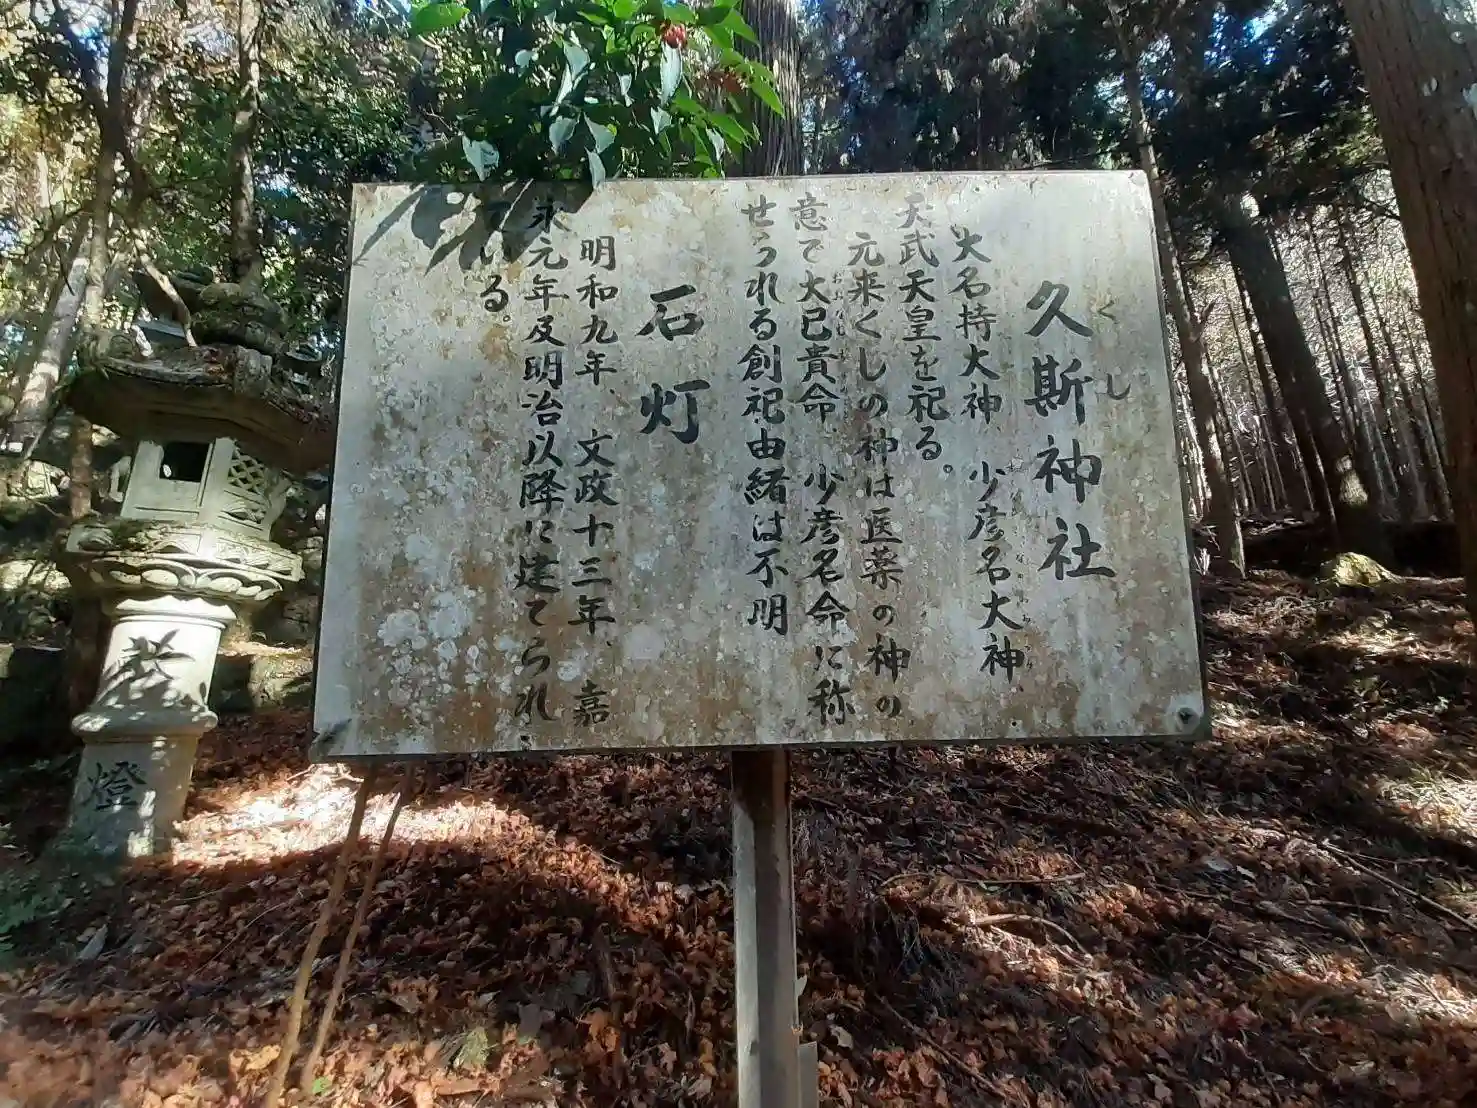 久斯神社
くし
大名持大神 少彦名大神
天武天皇を祀る。
元来くしの神は医薬の神の
意で大已貴命 少彦名命に称
せられる創祀由緒は不明
石灯
明和九年、文政十三年、嘉
永元年及明治以降に建てられ
ている。
燈